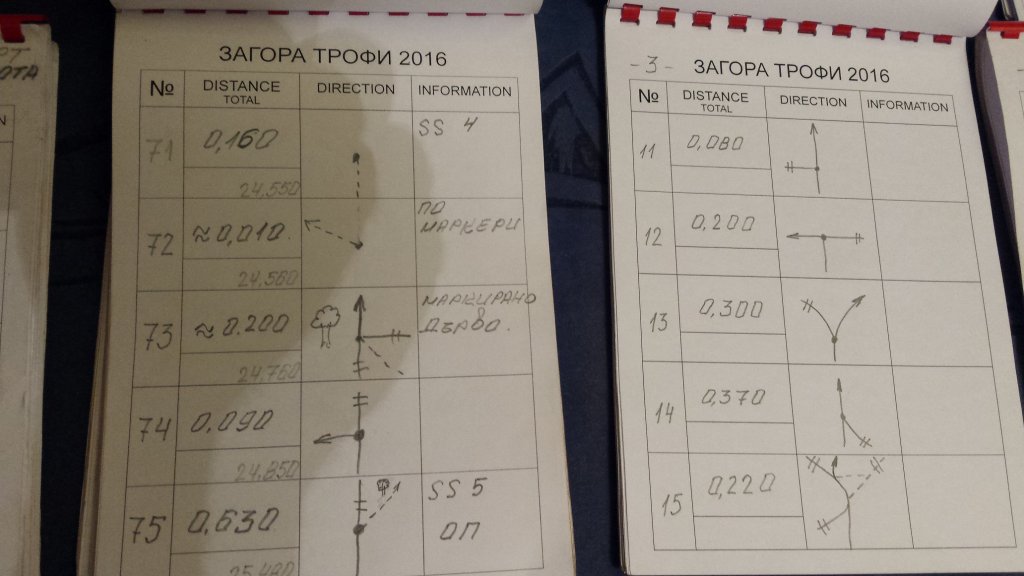 ОТА
ЗАГОРА ТРОФИ 2016
№ DISTANCE TOTAL DIRECTION INFORMATION
71 0,160 SS 4
24.550
72 ≈0,010 ПО МАРКЕРИ
24.560
73 ≈0.200 МАРКИРАНО ДЪРВО.
24.760
74 0,090
24.850
75 0,630 SS 5 ОП
25.480
- 3 - ЗАГОРА ТРОФИ 2016
№ DISTANCE TOTAL DIRECTION INFORMATION
11 0,080
12 0,200
13 0,300
14 0,370
15 0,220